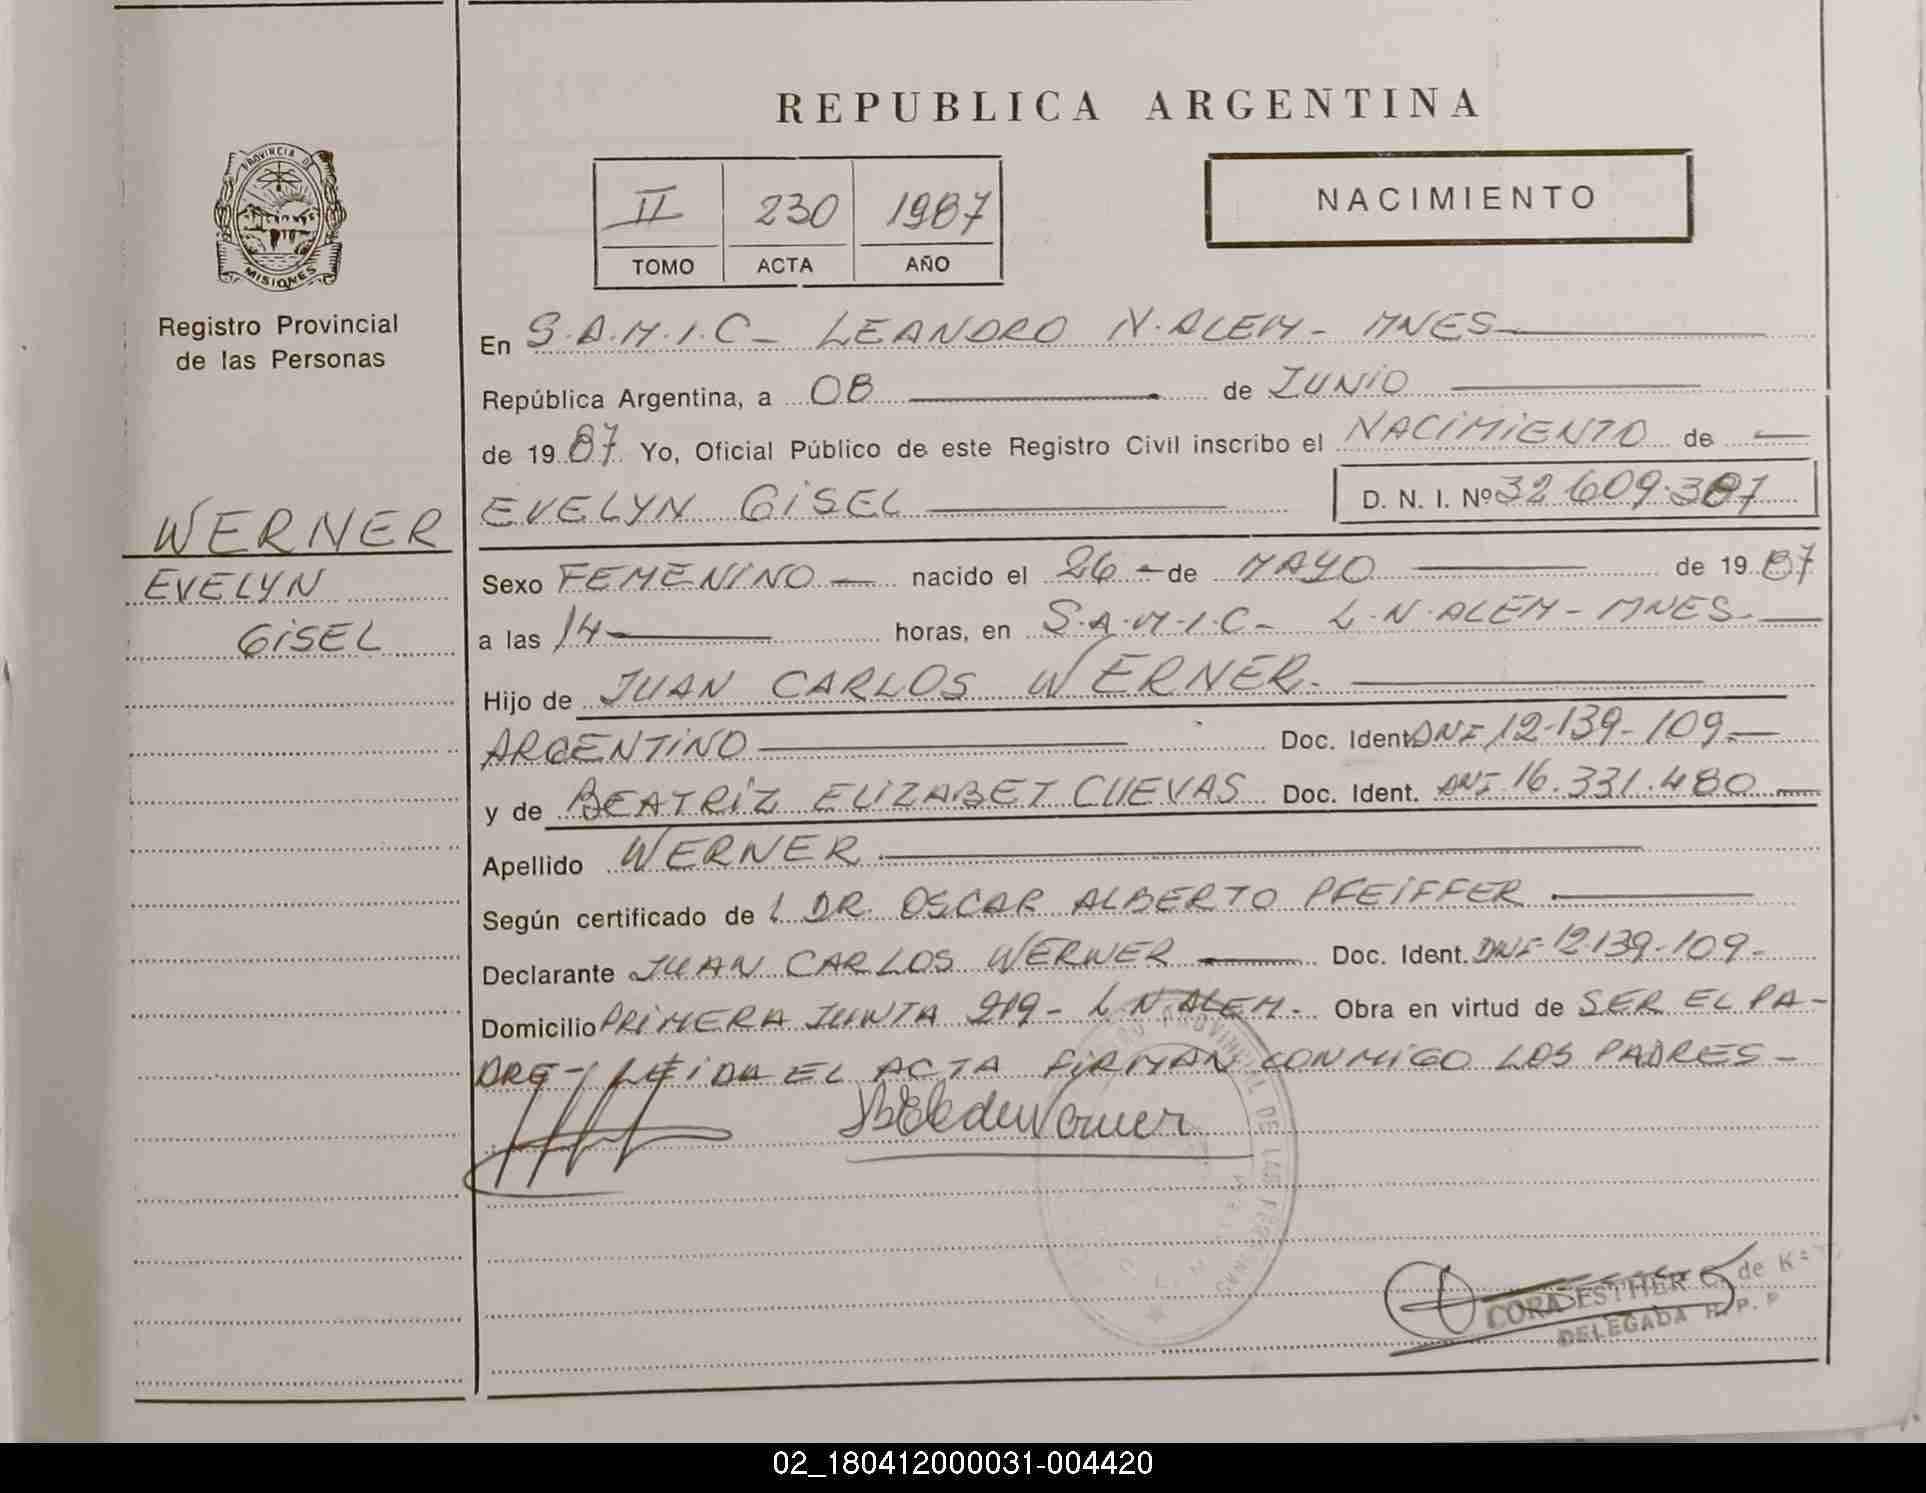 REPUBLICA ARGENTINA
PROVINCIA DE
MISIONES
Registro Provincial
de las Personas
II 230 1987
TOMO ACTA AÑO
NACIMIENTO
En S.A.M.I.C - LEANDRO N. ALEM - MNES
República Argentina, a 08 de JUNIO
de 1987 Yo, Oficial Público de este Registro Civil inscribo el NACIMIENTO de
EVELYN GISEL D. N. I. Nº 32 609.387
WERNER
EVELYN
GISEL
Sexo FEMENINO nacido el 26 - de MAYO de 1987
a las 14 horas, en S.A.M.I.C - L.N. ALEM - MNES
Hijo de JUAN CARLOS WERNER.
ARGENTINO Doc. Ident. DNI 12-139-109
y de BEATRIZ ELIZABET CUEVAS Doc. Ident. DNI 16.331.480
Apellido WERNER
Según certificado de l DR. OSCAR ALBERTO PFEIFFER
Declarante JUAN CARLOS WERNER Doc. Ident. DNI-12-139-109-
Domicilio PRIMERA JUNTA 219 - L N. ALEM - Obra en virtud de SER EL PA-
DRE - LEIDA EL ACTA FIRMAN CONMIGO LOS PADRES -
PROVINCIAL DE LAS PERSONAS
CORA ESTHER C. de K
DELEGADA R. P. P
02_180412000031-004420